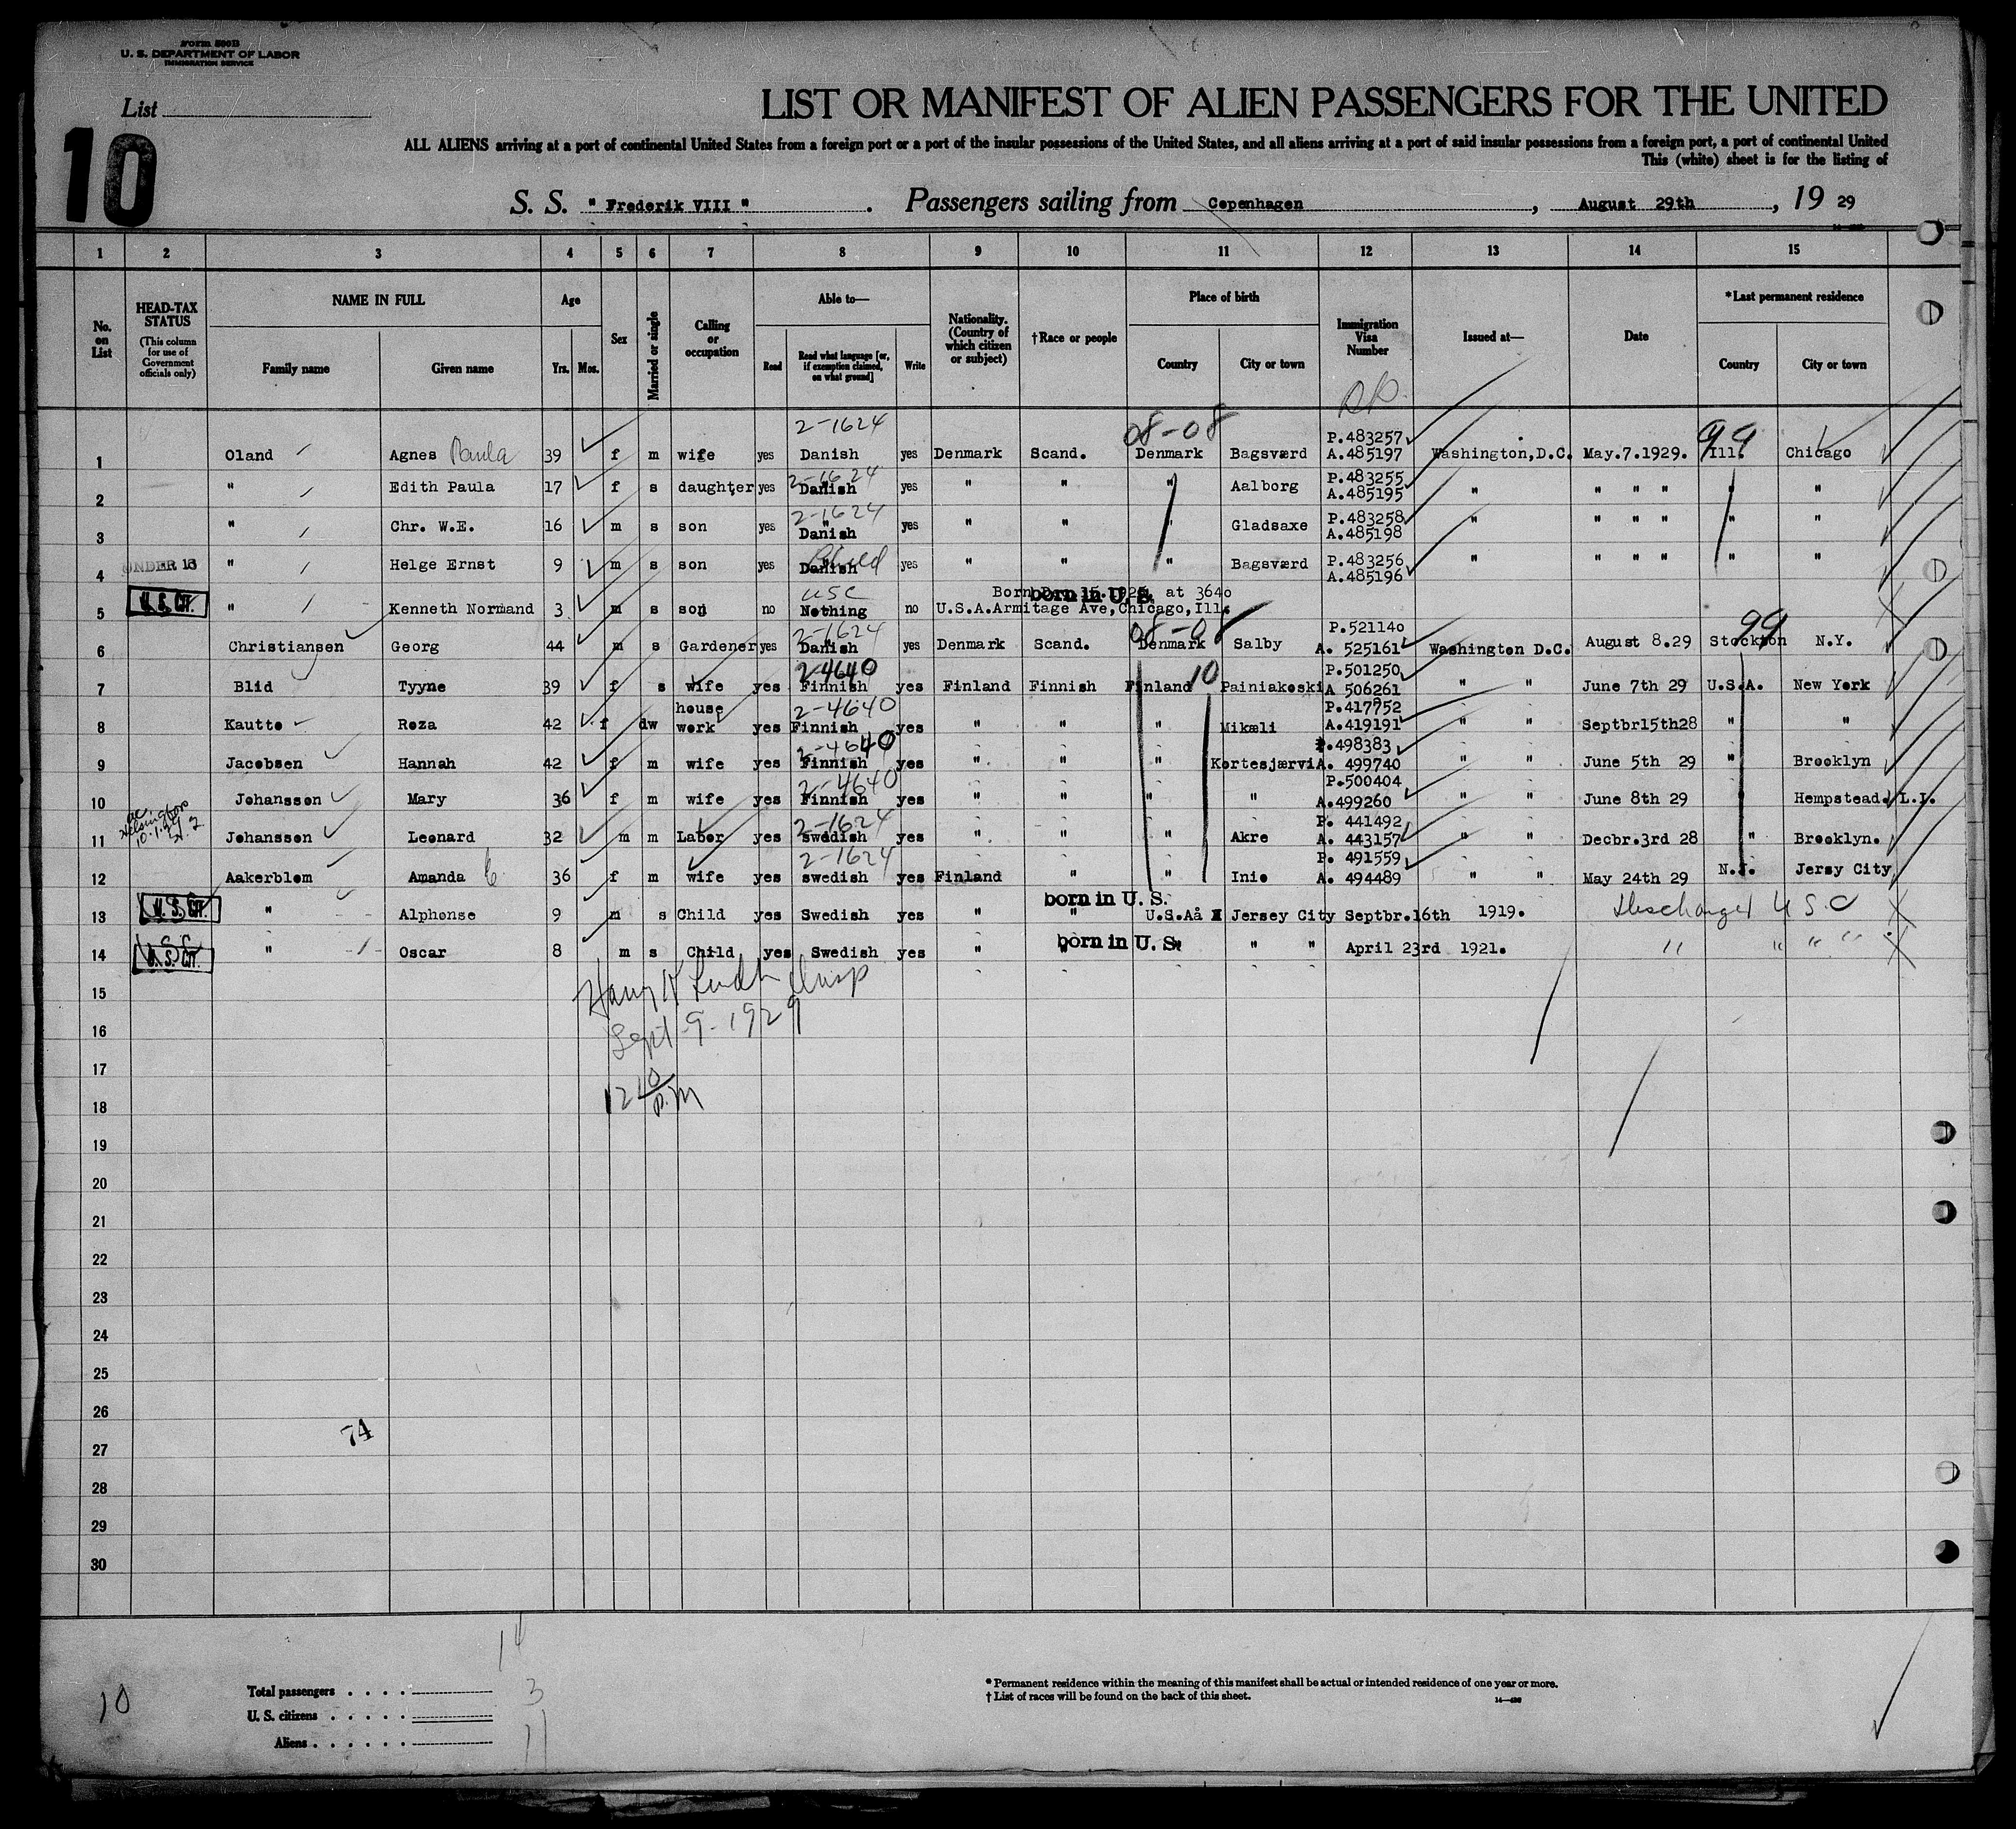 Form 500B
U. S. DEPARTMENT OF LABOR
IMMIGRATION SERVICE
List
10
LIST OR MANIFEST OF ALIEN PASSENGERS FOR THE UNITED
ALL ALIENS arriving at a port of continental United States from a foreign port or a port of the insular possessions of the United States, and all aliens arriving at a port of said insular possessions from a foreign port, a port of continental United
This (white) sheet is for the listing of
S. S. "Frederik VIII". Passengers sailing from Copenhagen, August 29th, 19 29
1 2 3 4 5 6 7 8 9 10 11 12 13 14 15
No. on List
HEAD-TAX STATUS
(This column for use of Government officials only)
NAME IN FULL
Family name Given name
Age
Yrs. Mos.
Sex
Married or single
Calling or occupation
Able to—
Read Read what language [or, if exemption claimed, on what ground] Write
Nationality. (Country of which citizen or subject)
†Race or people
Place of birth
Country City or town
Immigration Visa Number
Issued at—
Date
*Last permanent residence
Country City or town
2-1624 08-08 P.483257 99
1 Oland Agnes Paula 39 f m wife yes Danish yes Denmark Scand. Denmark Bagsværd A.485197 Washington,D.C. May.7.1929. Ill. Chicago
2-1624 P.483255
2 " Edith Paula 17 f s daughter yes Danish yes " " " Aalborg A.485195 " " " " " "
2-1624 P.483258
3 " Chr. W.E. 16 m s son yes Danish yes " " " Gladsaxe A.485198 " " " " " "
P.483256
4 UNDER 16 " Helge Ernst 9 m s son yes Danish yes " " " Bagsværd A.485196 " " " " " "
U. S. CIT. USC born in U. S. at 3640
5 " Kenneth Normand 3 m s son no Nothing no U.S.A. Armitage Ave, Chicago, Ill.
2-1624 08-08 P.521140 99
6 Christiansen Georg 44 m s Gardener yes Danish yes Denmark Scand. Denmark Salby A. 525161 Washington D.C. August 8.29 Stockton N.Y.
2-4640 10 P.501250
7 Blid Tyyne 39 f s wife yes Finnish yes Finland Finnish Finland Painiakoski A 506261 " " June 7th 29 U.S.A. New York
house 2-4640 P.417752
8 Kautto Roza 42 f dw work yes Finnish yes " " " Mikæli A.419191 " " Septbr15th28 " "
2-4640 P.498383
9 Jacobsen Hannah 42 f m wife yes Finnish yes " " " Kortesjærvi A. 499740 " " June 5th 29 " Brooklyn
2-4640 P.500404
10 Johansson Mary 36 f m wife yes Finnish yes " " " " A.499260 " " June 8th 29 " Hempstead. L.I.
2-1624 P. 441492
11 Johansson Leonard 32 m m Labor yes swedish yes " " " Akre A. 443157 " " Decbr.3rd 28 " Brooklyn.
2-1624 P. 491559
12 Aakerblom Amanda C 36 f m wife yes swedish yes Finland " " Inio A. 494489 " " May 24th 29 N.J. Jersy City
U. S. CIT. born in U. S.
13 " Alphonse 9 m s Child yes Swedish yes " " U.S.Aå Jersey City Septbr.16th 1919. Discharged U S C
U. S. CIT. born in U. S.
14 " Oscar 8 m s Child yes Swedish yes " " " " " April 23rd 1921. " " " "
Insp
Sept-9-1929
12 10 P.M
15
16
17
18
19
20
21
22
23
24
25
26
74
27
28
29
30
14
10
Total passengers 3
U. S. citizens
Aliens 11
*Permanent residence within the meaning of this manifest shall be actual or intended residence of one year or more.
† List of races will be found on the back of this sheet.